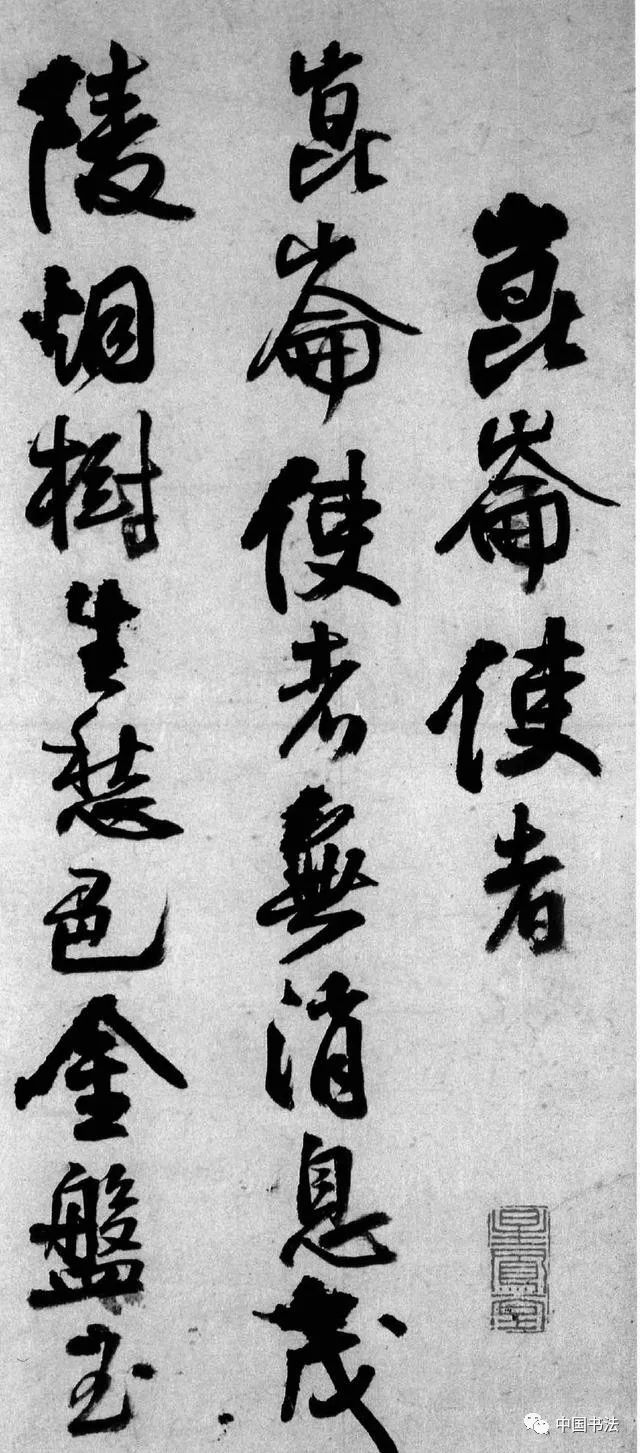 崑崙使者
崑崙使者無消息茂
陵烟樹生愁色金盤玉
中国书法